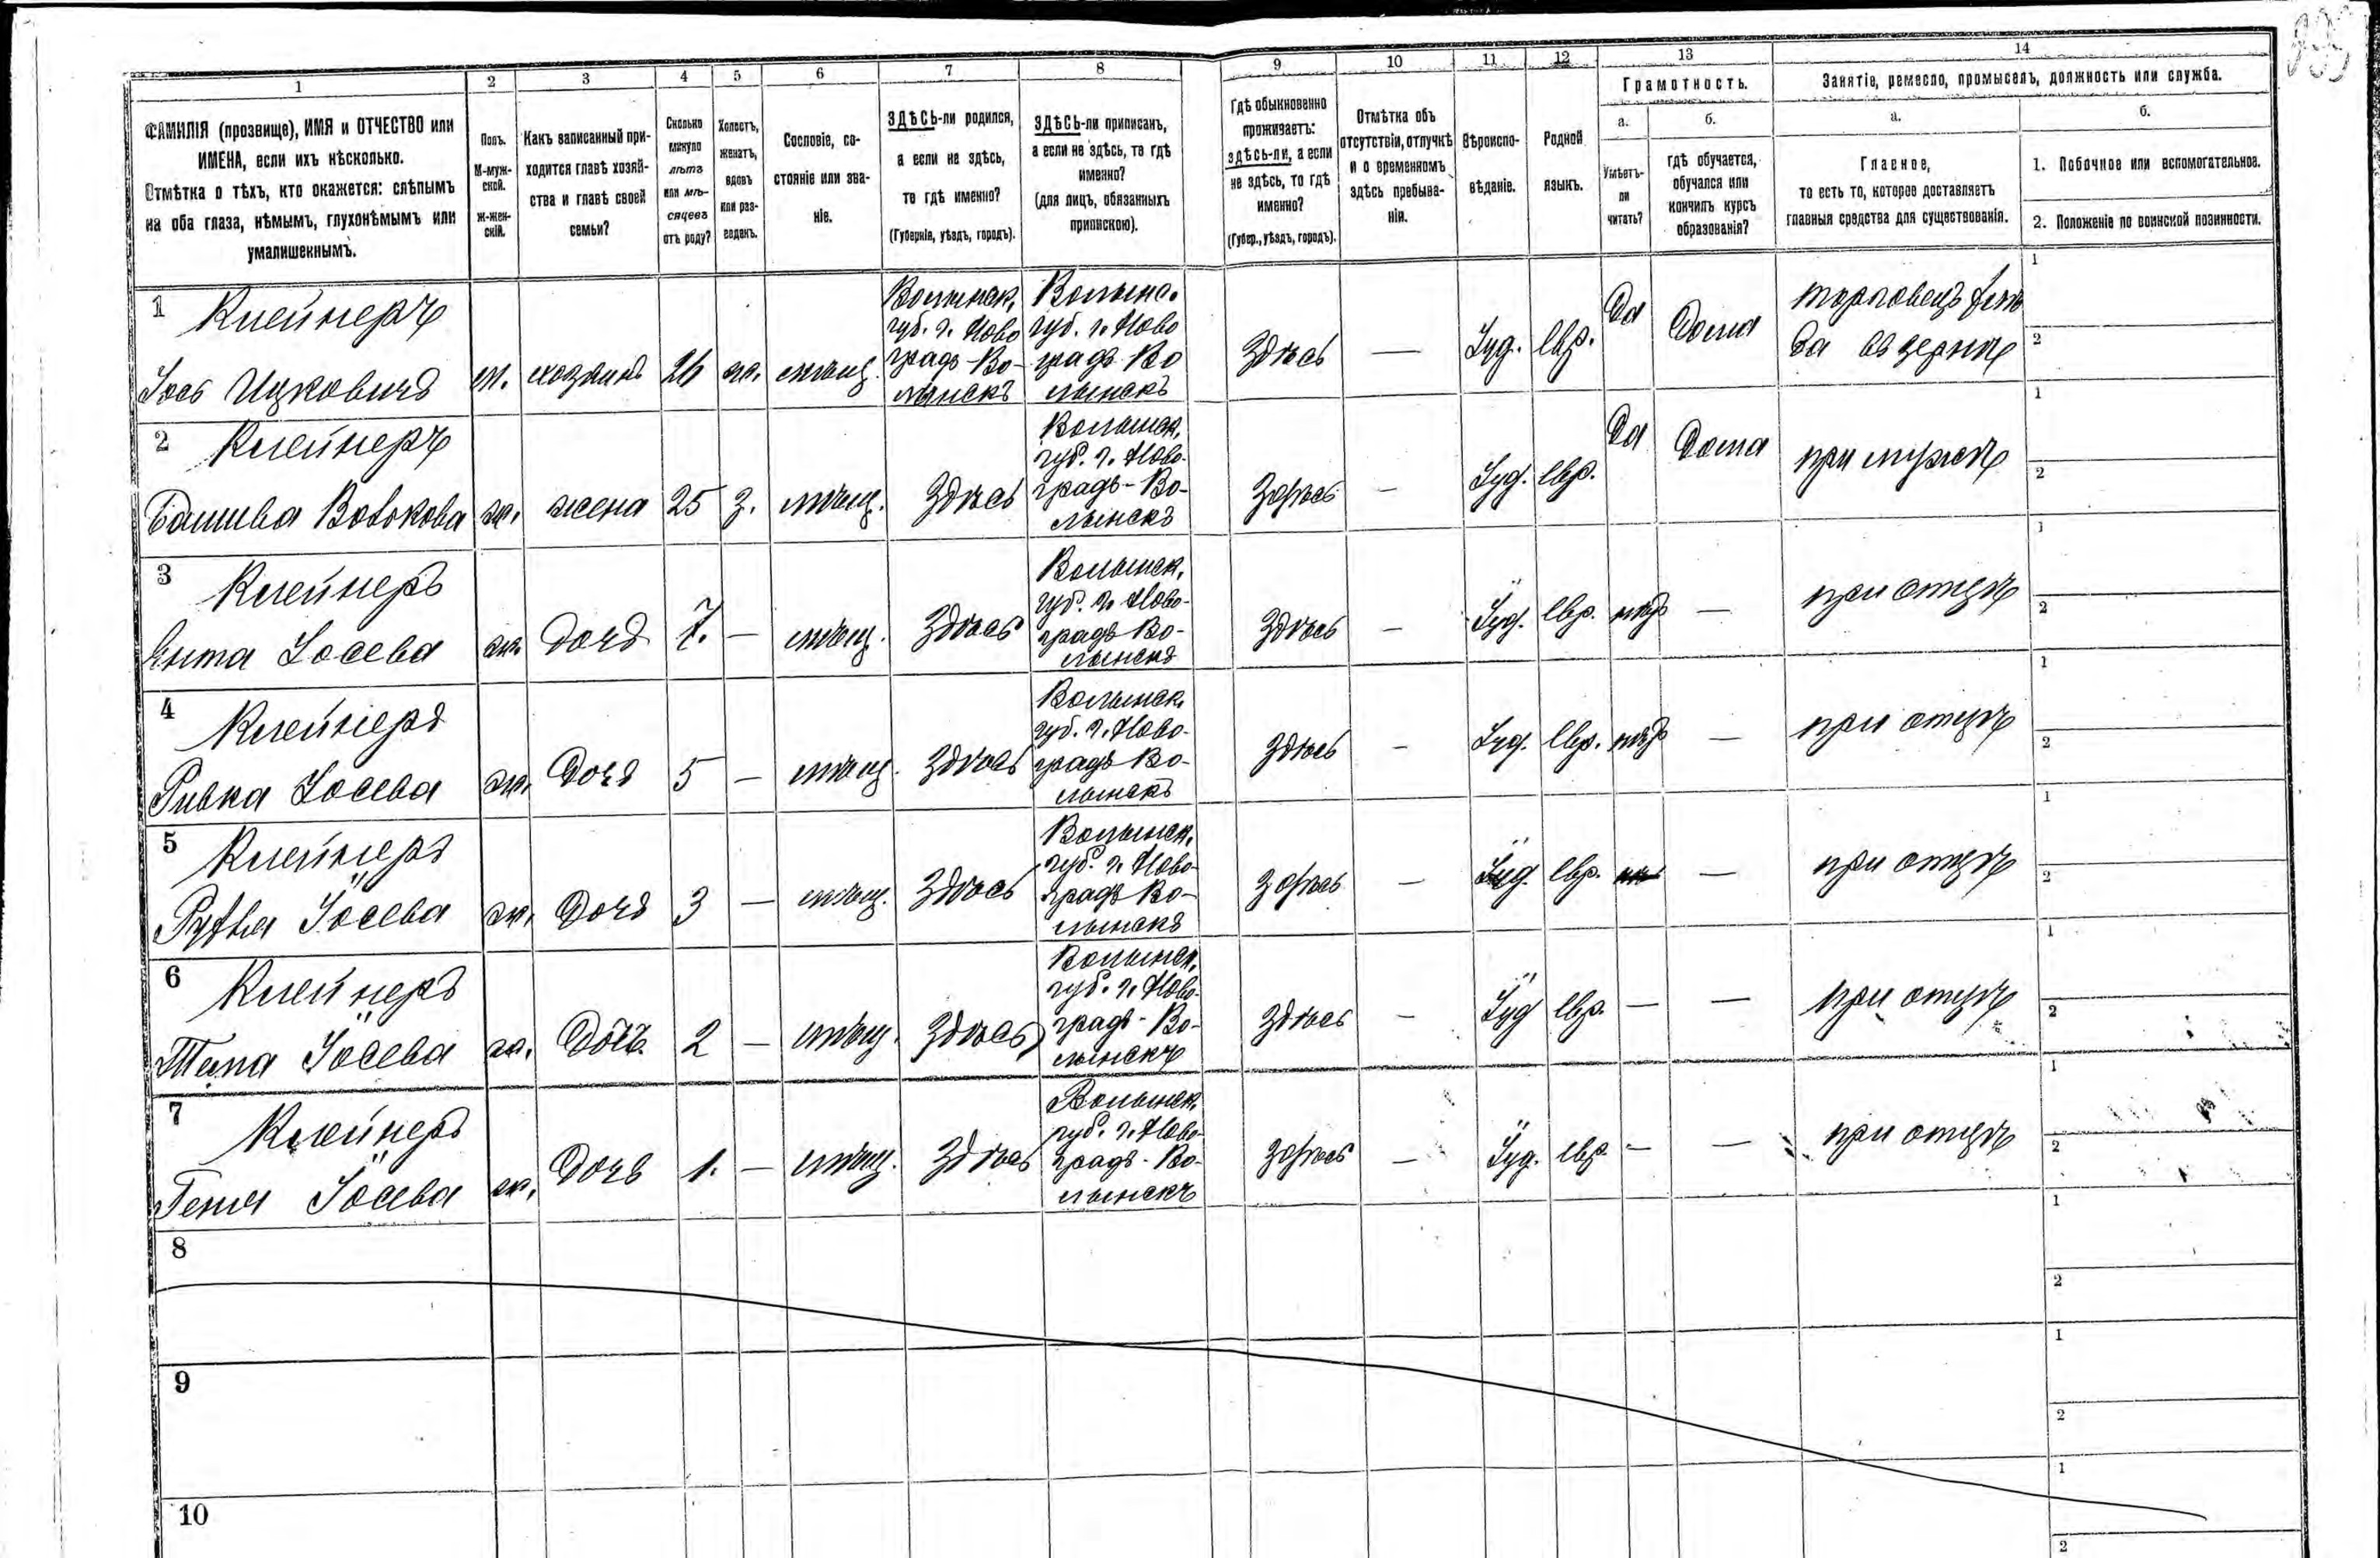 1 2 3 4 5 6 7 8 9 10 11 12 13 14
ФАМИЛІЯ (прозвище), ИМЯ и ОТЧЕСТВО или
ИМЕНА, если ихъ нѣсколько.
Отмѣтка о тѣхъ, кто окажется: слѣпымъ
на оба глаза, нѣмымъ, глухонѣмымъ или
умалишеннымъ.
Полъ.
М-муж-
ской.
ж-жен-
скій.
Какъ записанный при-
ходится главѣ хозяй-
ства и главѣ своей
семьи?
Сколько
минуло
лѣтъ
или мѣ-
сяцевъ
отъ роду?
Холостъ,
женатъ,
вдовъ
или раз-
веденъ.
Сословіе, со-
стояніе или зва-
ніе.
ЗДѢСЬ-ли родился,
а если не здѣсь,
то гдѣ именно?
(Губернія, уѣздъ, городъ).
ЗДѢСЬ-ли приписанъ,
а если не здѣсь, то гдѣ
именно?
(для лицъ, обязанныхъ
припискою).
Гдѣ обыкновенно
проживаетъ:
здѣсь-ли, а если
не здѣсь, то гдѣ
именно?
(Губер., уѣздъ, городъ).
Отмѣтка объ
отсутствіи, отлучкѣ
и о временномъ
здѣсь пребыва-
ніи.
Вѣроиспо-
вѣданіе.
Родной
языкъ.
Грамотность.
а.
Умѣетъ-
ли
читать?
б.
гдѣ обучается,
обучался или
кончилъ курсъ
образованія?
Занятіе, ремесло, промыселъ, должность или служба.
а.
Главное,
то есть то, которое доставляетъ
главныя средства для существованія.
б.
1. Побочное или вспомогательное.
2. Положеніе по воинской повинности.
1
Клейнеръ
Іось Ицковичъ
м.
хозяинъ
26
ж.
мѣщ.
Волынск.
губ. г. Ново
градъ-Во-
лынскъ
Волынс.
губ. г. Ново
градъ Во
лынскъ
Здѣсь
—
Іуд.
евр.
Да
Дома
торговецъ
1
2
2
Клейнеръ
ж.
жена
25
з.
мѣщ.
Здѣсь
Волынск.
губ. г. Ново-
градъ-Во-
лынскъ
Здѣсь
—
Іуд.
евр.
Да
Дома
при мужѣ
1
2
3
Клейнеръ
Ента Іосева
ж.
Дочь
7.
—
мѣщ.
Здѣсь
Волынск.
губ. г. Ново-
градъ Во-
лынскъ
Здѣсь
—
Іуд.
евр.
нѣтъ
—
при отцѣ
1
2
4
Клейнеръ
Ривка Іосева
ж.
Дочь
5
—
мѣщ.
Здѣсь
Волынск.
губ. г. Ново-
градъ Во-
лынскъ
Здѣсь
—
Іуд.
евр.
нѣтъ
—
при отцѣ
1
2
5
Клейнеръ
Іосева
ж.
Дочь
3
—
мѣщ.
Здѣсь
Волынск.
губ. г. Ново-
градъ Во-
лынскъ
Здѣсь
—
Іуд.
евр.
—
при отцѣ
1
2
6
Клейнеръ
Іосева
ж.
Дочь
2
—
мѣщ.
Здѣсь
Волынск.
губ. г. Ново-
градъ-Во-
лынскъ
Здѣсь
—
Іуд
евр.
—
—
при отцѣ
1
2
7
Клейнеръ
Геня Іосева
ж.
Дочь
1.
—
мѣщ.
Здѣсь
Волынск.
губ. г. Ново-
градъ-Во-
лынскъ
Здѣсь
—
Іуд.
евр.
—
—
при отцѣ
1
2
8
1
2
9
1
2
10
1
2